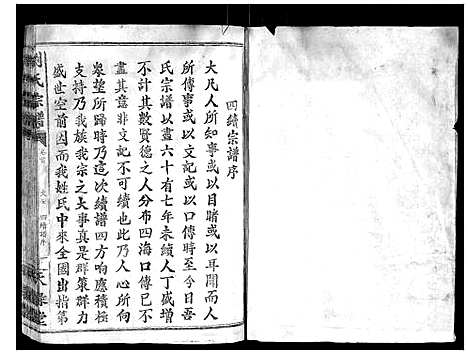 四續宗譜序
大凡人所知事或以目睹或以口
傳佈事或以文記或以口傳至今日吾
氏宗譜以盡六十有七年未續人丁咸增
不計其數賢德之人分布四海口傳已不
盡其意非文不可續也此乃人心所向
衆望所歸時乃這次續譜四方响應積極
支持乃我族我宗之大事真是群策群力
盛世空前因而我姓氏中來全國出指第
劉氏宗譜
四續譜序